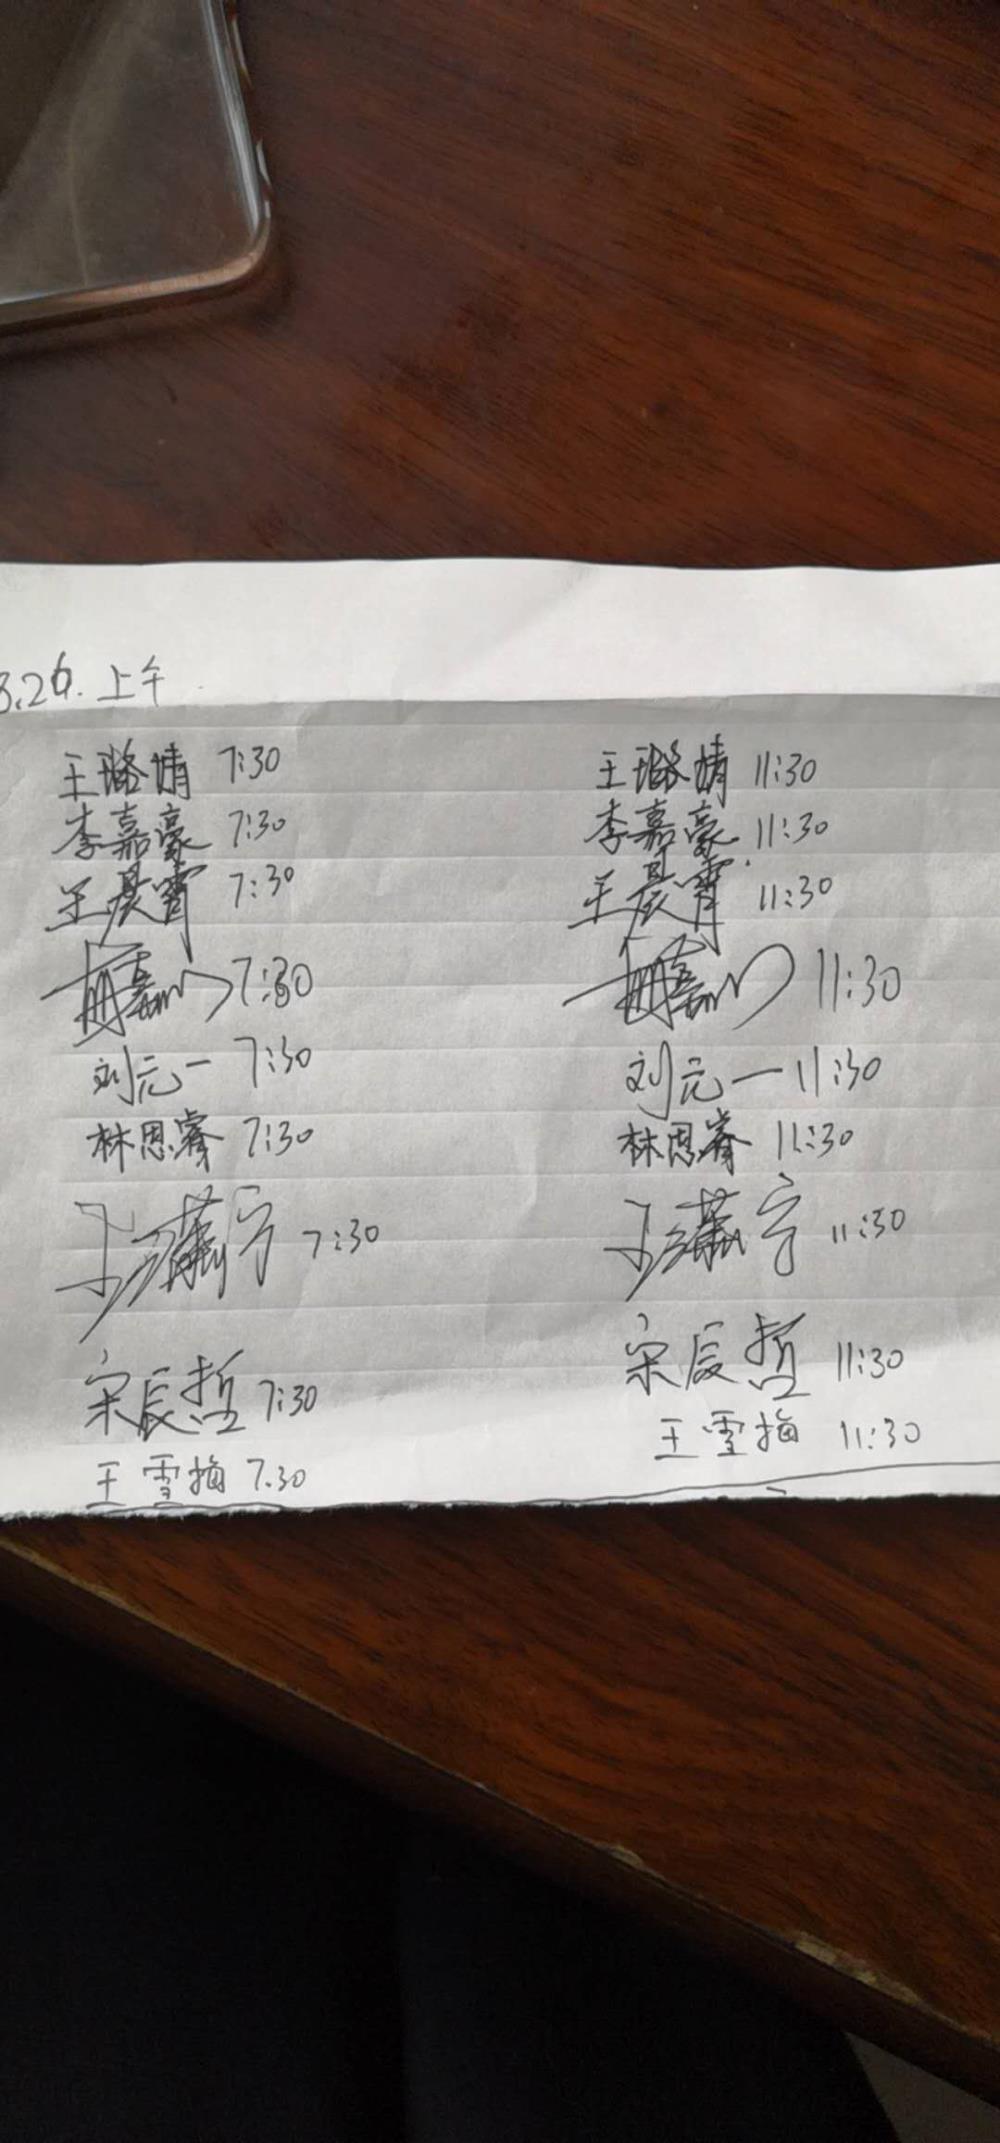 3.26. 上午
王璐婧 7:30 王璐婧 11:30
李嘉豪 7:30 李嘉豪 11:30
王晨霄 7:30 王晨霄 11:30
7:30 11:30
刘元一 7:30 刘元一 11:30
林思睿 7:30 林思睿 11:30
王潇宁 7:30 王潇宁 11:30
宋辰哲 7:30 宋辰哲 11:30
王雪梅 7.30 王雪梅 11:30